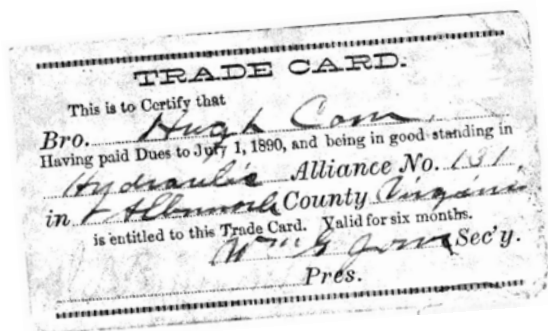 TRADE CARD.
This is to Certify that
Bro. Hugh Carr
Having paid Dues to July 1, 1890, and being in good standing in
Hydraulic Alliance No. 131
in Albemarle County Virginia
is entitled to this Trade Card. Valid for six months.
Wm G Jones Sec'y.
Pres.